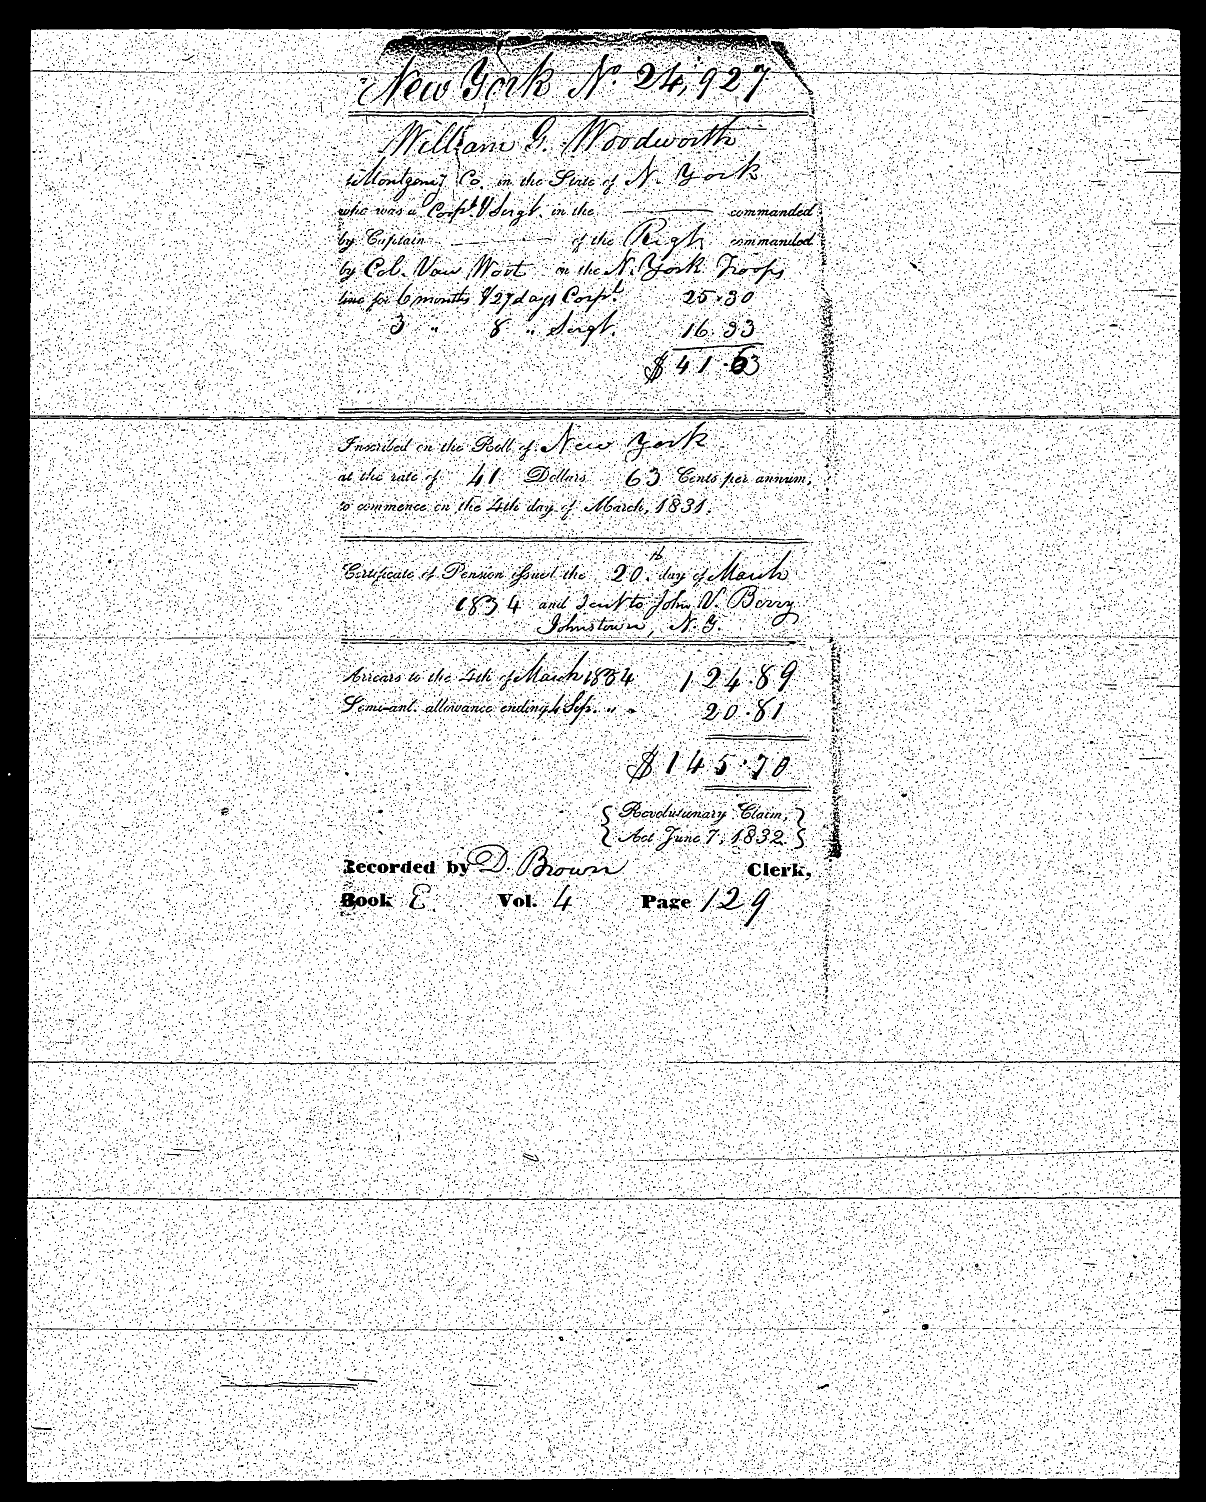 New York No. 24,927
William G. Woodworth
Montgomy Co. in the State of N. York
who was a Corpl. & Sergt. in the ——— commanded
by Captain ——— of the Regt. commanded
by Col. Van Woot in the N. York Troops
for 6 months & 27 days Corpl. 25.30
3 " 8 " Sergt. 16.33
$41.63
Inscribed on the Roll of New York
at the rate of 41 Dollars 63 Cents per annum,
to commence on the 4th day of March, 1831.
Certificate of Pension issued the 20th day of March
1834 and sent to John V. Berry
Johnstown, N.Y.
Arrears to the 4th of March 1834 124.89
Semi-anl. allowance ending 4 Sep. " " 20.81
$145.70
{Revolutionary Claim,}
{Act June 7, 1832.}
Recorded by D. Brown Clerk,
Book E Vol. 4 Page 129